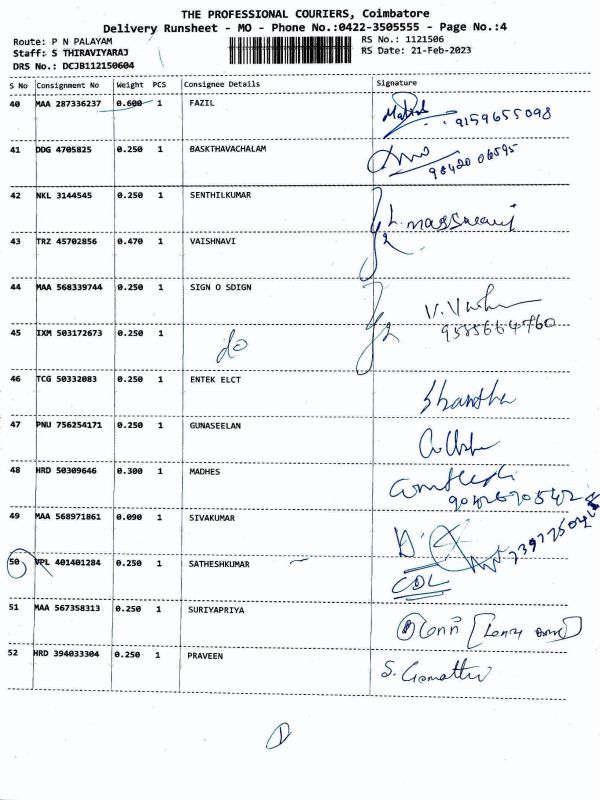 THE PROFESSIONAL COURIERS, Coimbatore
Delivery Runsheet - MO - Phone No.:0422-3505555 - Page No.:4
Route: P N PALAYAM RS No.: 1121506
Staff: S THIRAVIYARAJ RS Date: 21-Feb-2023
DRS No.: DCJB112150604
S No Consignment No Weight PCS Consignee Details Signature
40 MAA 287336237 0.600 1 FAZIL
9159655098
41 DDG 4705825 0.250 1 BASKTHAVACHALAM
42 NKL 3144545 0.250 1 SENTHILKUMAR
43 TRZ 45702856 0.470 1 VAISHNAVI
44 MAA 568339744 0.250 1 SIGN O SDIGN
45 IXM 503172673 0.250 1 do
46 TCG 50332083 0.250 1 ENTEK ELCT
47 PNU 756254171 0.250 1 GUNASEELAN
48 HRD 50309646 0.300 1 MADHES
49 MAA 568971861 0.090 1 SIVAKUMAR
50 VPL 401401284 0.250 1 SATHESHKUMAR
CDL
51 MAA 567358313 0.250 1 SURIYAPRIYA
52 HRD 394033304 0.250 1 PRAVEEN